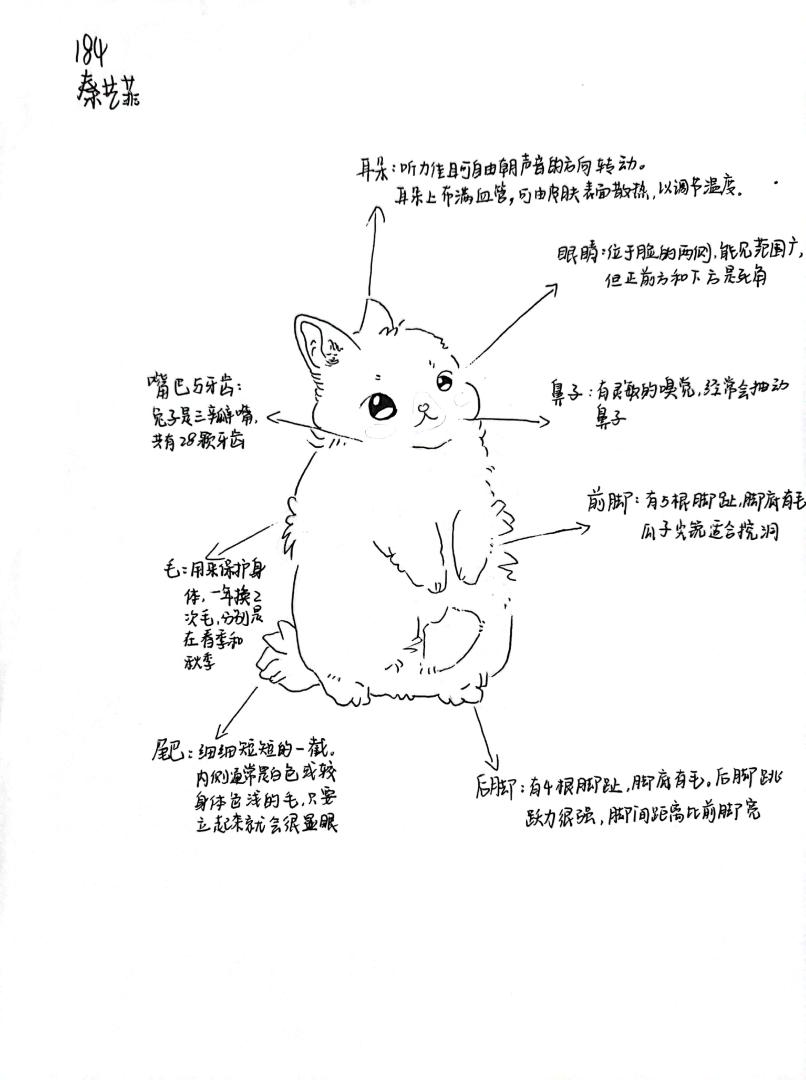 184
秦艺菲
耳朵:听力佳且可自由朝声音的方向转动。
耳朵上布满血管,可由皮肤表面散热,以调节温度。
眼睛:位于脸的两侧,能见范围广,
但正前方和下方是死角
嘴巴与牙齿:
兔子是三瓣嘴,
共有28颗牙齿
鼻子:有灵敏的嗅觉,经常会抽动
鼻子
前脚:有5根脚趾,脚底有毛
爪子尖锐适合挖洞
毛:用来保护身
体,一年换2
次毛,分别是
在春季和
秋季
尾巴:细细短短的一截。
内侧通常是白色或较
身体色浅的毛,只要
立起来就会很显眼
后脚:有4根脚趾,脚底有毛。后脚跳
跃力很强,脚间距离比前脚宽